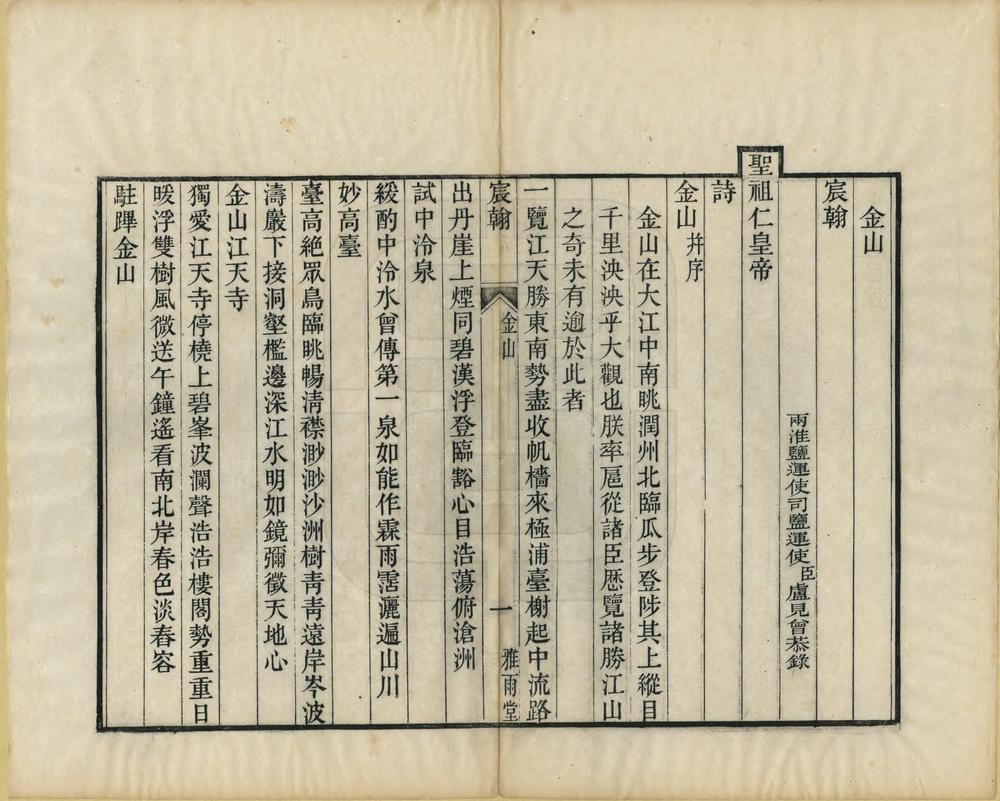 金山
宸翰
兩淮鹽運使司鹽運使臣盧見曾恭錄
聖祖仁皇帝
詩
金山并序
金山在大江中南眺潤州北臨瓜步登陟其上縱目
千里泱泱乎大觀也朕率扈從諸臣歷覽諸勝江山
之奇未有逾於此者
一覽江天勝東南勢盡收帆檣來極浦臺榭起中流路
宸翰 金山 一 雅雨堂
出丹崖上煙同碧漢浮登臨豁心目浩蕩俯滄洲
試中泠泉
緩酌中泠水曾傳第一泉如能作霖雨霑灑遍山川
妙高臺
臺高絕眾鳥臨眺暢清襟渺渺沙洲樹青青遠岸岑波
濤巖下接洞壑檻邊深江水明如鏡彌徵天地心
金山江天寺
獨愛江天寺停橈上碧峯波瀾聲浩浩樓閣勢重重日
暖浮雙樹風微送午鐘遙看南北岸春色淡春容
駐蹕金山